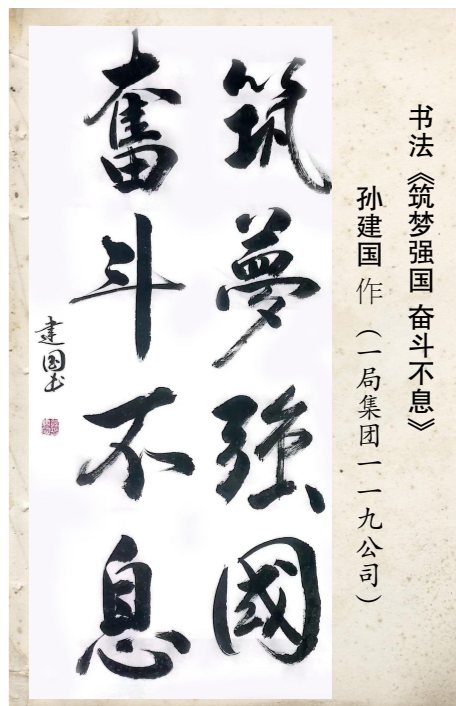 书法《筑梦强国 奋斗不息》
孙建国 作（一局集团一一九公司）
筑夢強國
奮斗不息
建国书